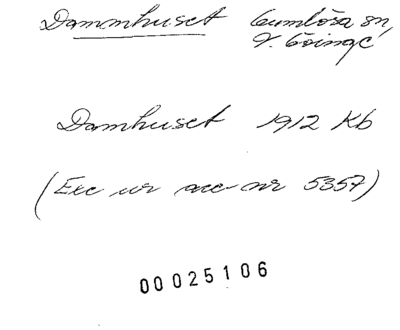 Dammhuset Gumlösa sn,
V. Göinge
Damhuset 1912 Kb
(Exc ur acc-nr 5357)
00025106